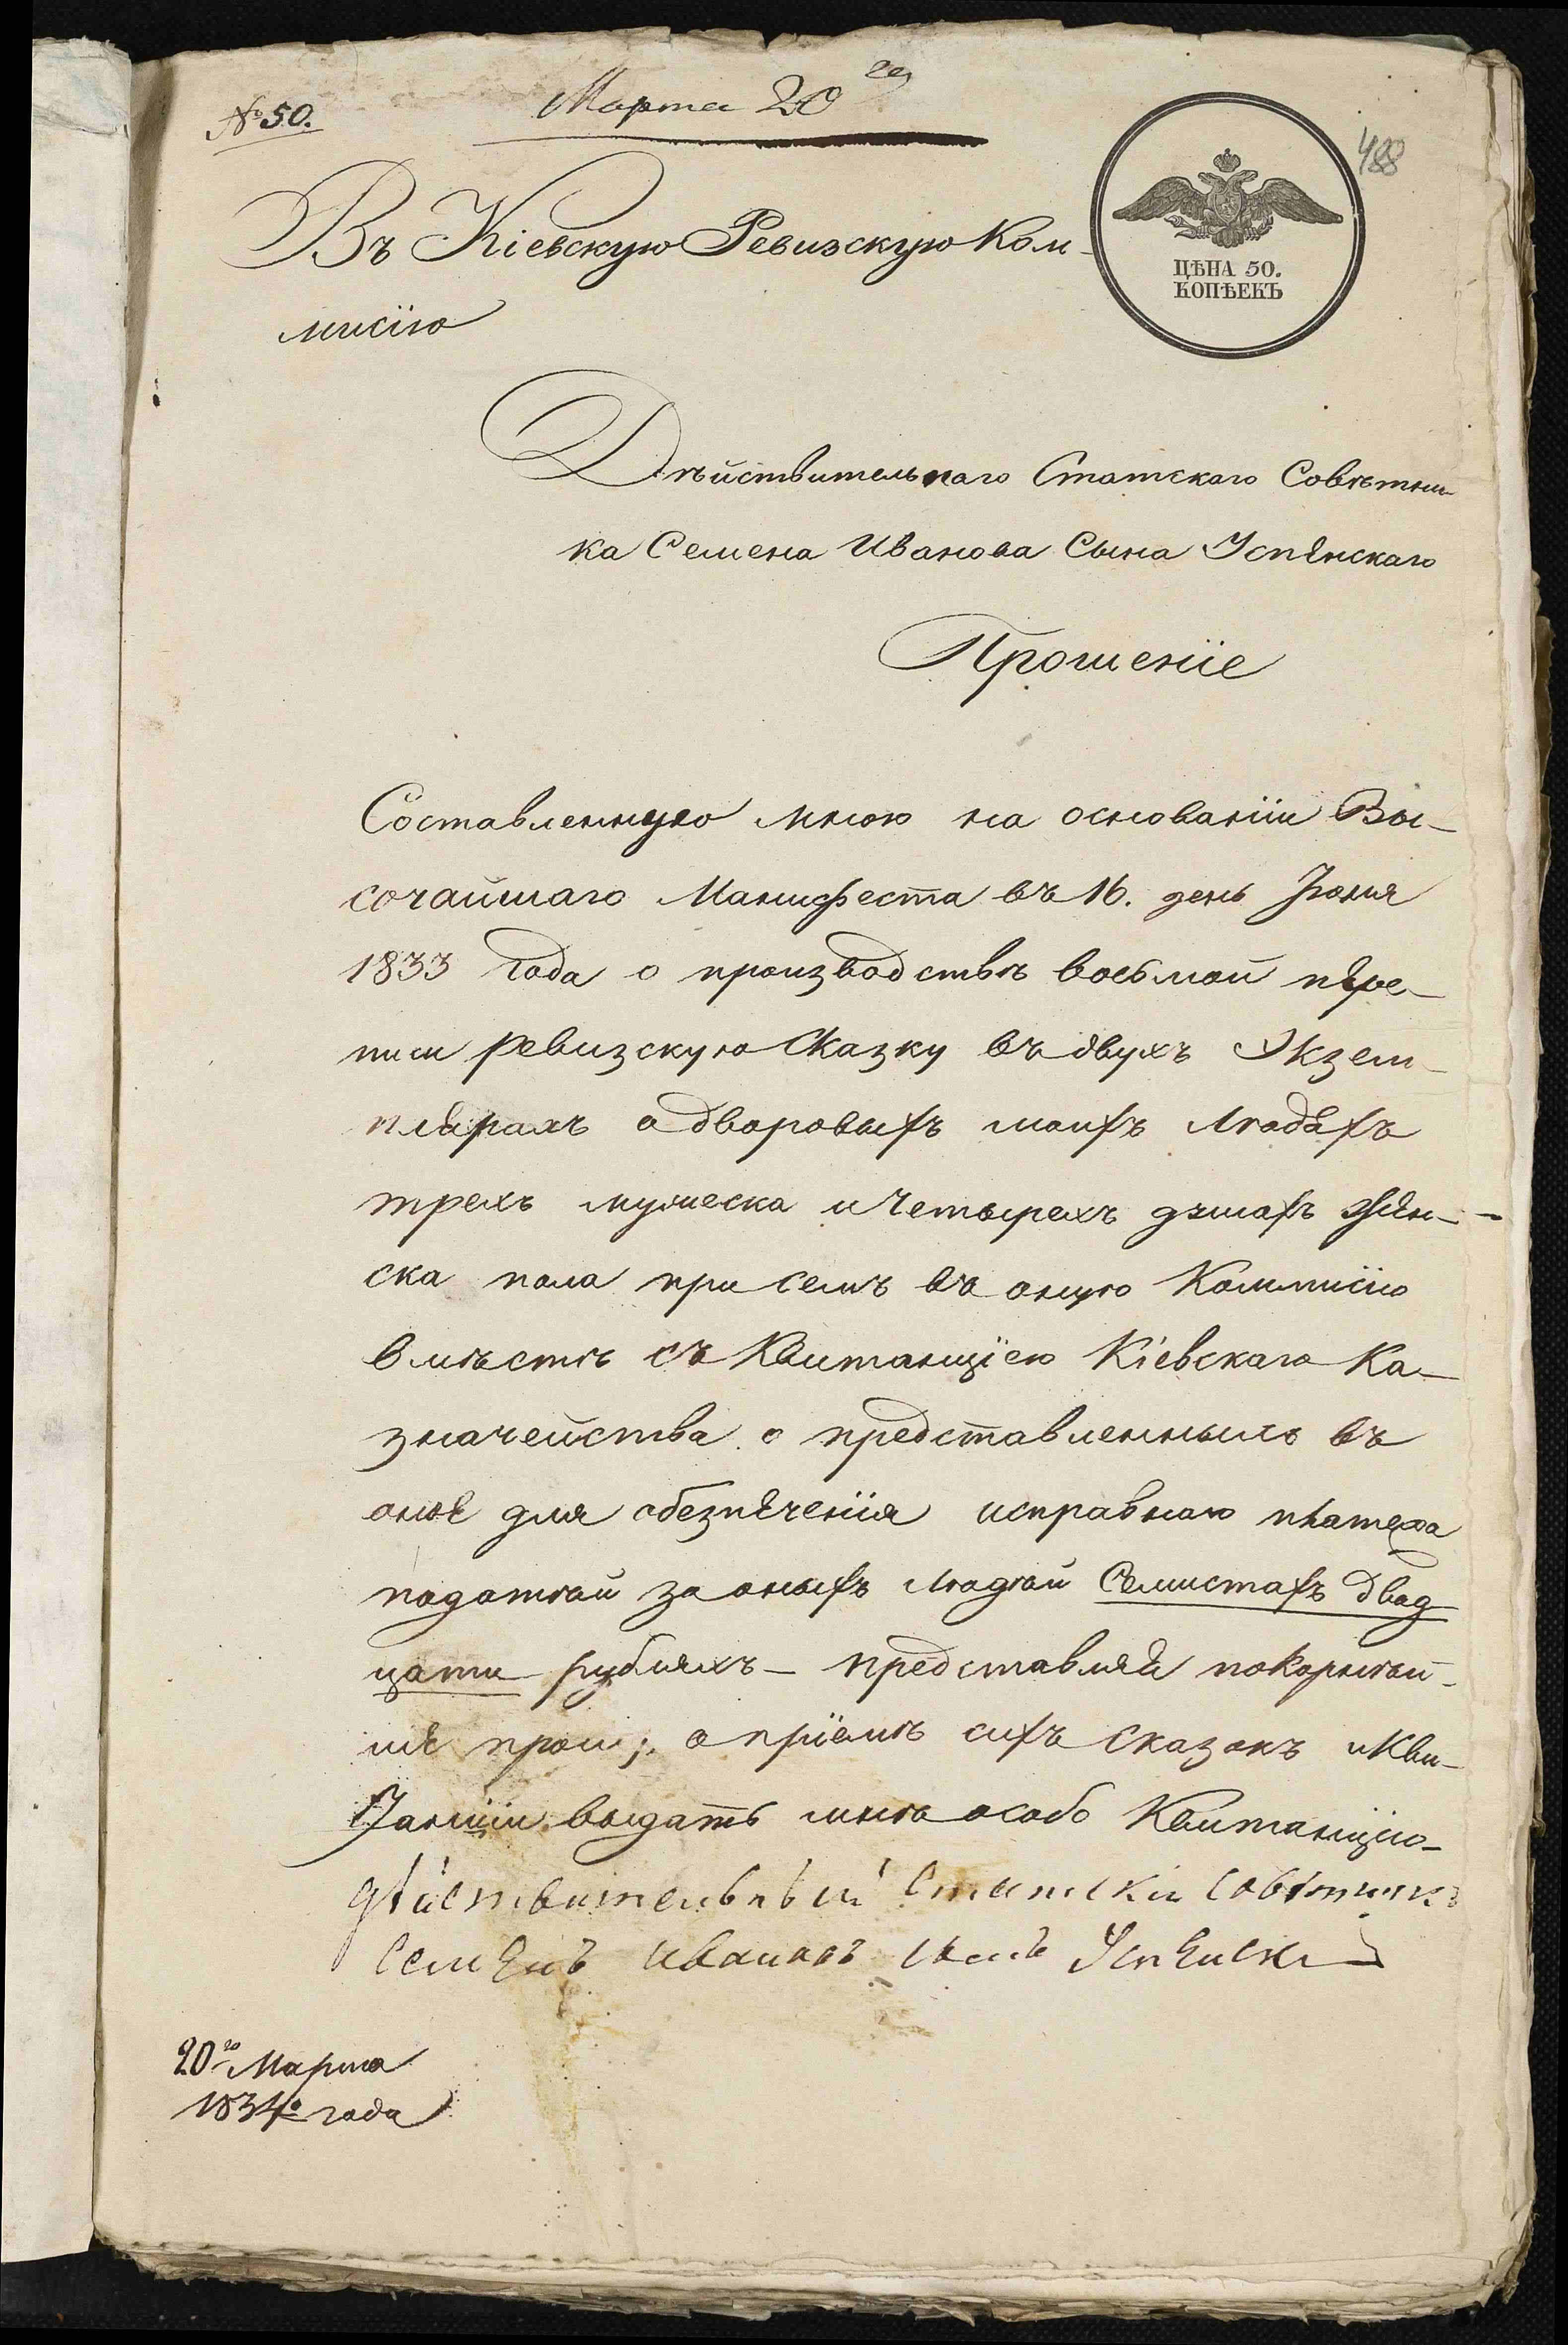 № 50.
Марта 20го
488
Въ Кіевскую Ревизскую Ком-
мисію
ЦѢНА 50.
КОПѢЕКЪ
Дѣйствительнаго Статскаго Совѣтни-
ка Семена Иванова Сына Успенскаго
Прошеніе
Составленную мною на основаніи Вы-
сочайшаго Манифеста въ 16. день Іюня
1833 года о производствѣ восьмой пере-
писи ревизскую Сказку въ двухъ Экзем-
плярахъ о дворовыхъ моихъ людехъ
трехъ мужеска и Четырехъ душахъ жен-
ска пола при семъ въ оную Коммисію
вмѣстѣ съ Квитанціею Кіевскаго Ка-
значейства о представленныхъ въ
оное для обезпеченія исправнаго платежа
податѣй за оныхъ людѣй Семистахъ двад
цати рубляхъ – представляя покорнѣй-
ше прошу; о пріемѣ сихъ сказокъ и Кви-
танціи выдать мнѣ особо Квитанцію-
дѣйствительный статскій совѣтникъ
Семенъ Ивановъ сынъ Успенскій
20го Марта
1834го года